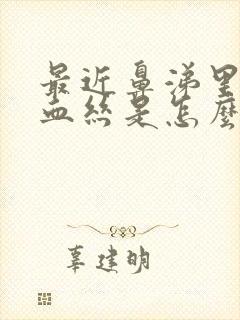 最近鼻涕里
血丝是怎麽
辜建明